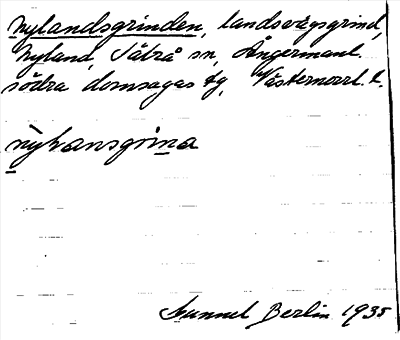 Nylandsgrinden, landsvägsgrind,
Nyland, Sätrå sn, Ångermanl.
södra domsagas tg, Västernorrl. l.
nyhansgrina
Gunnel Berlin 1935